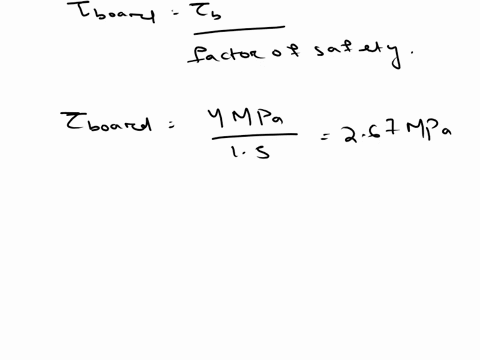 τboard = τb / factor of safety.
τboard = 4 MPa / 1.5 = 2.67 MPa